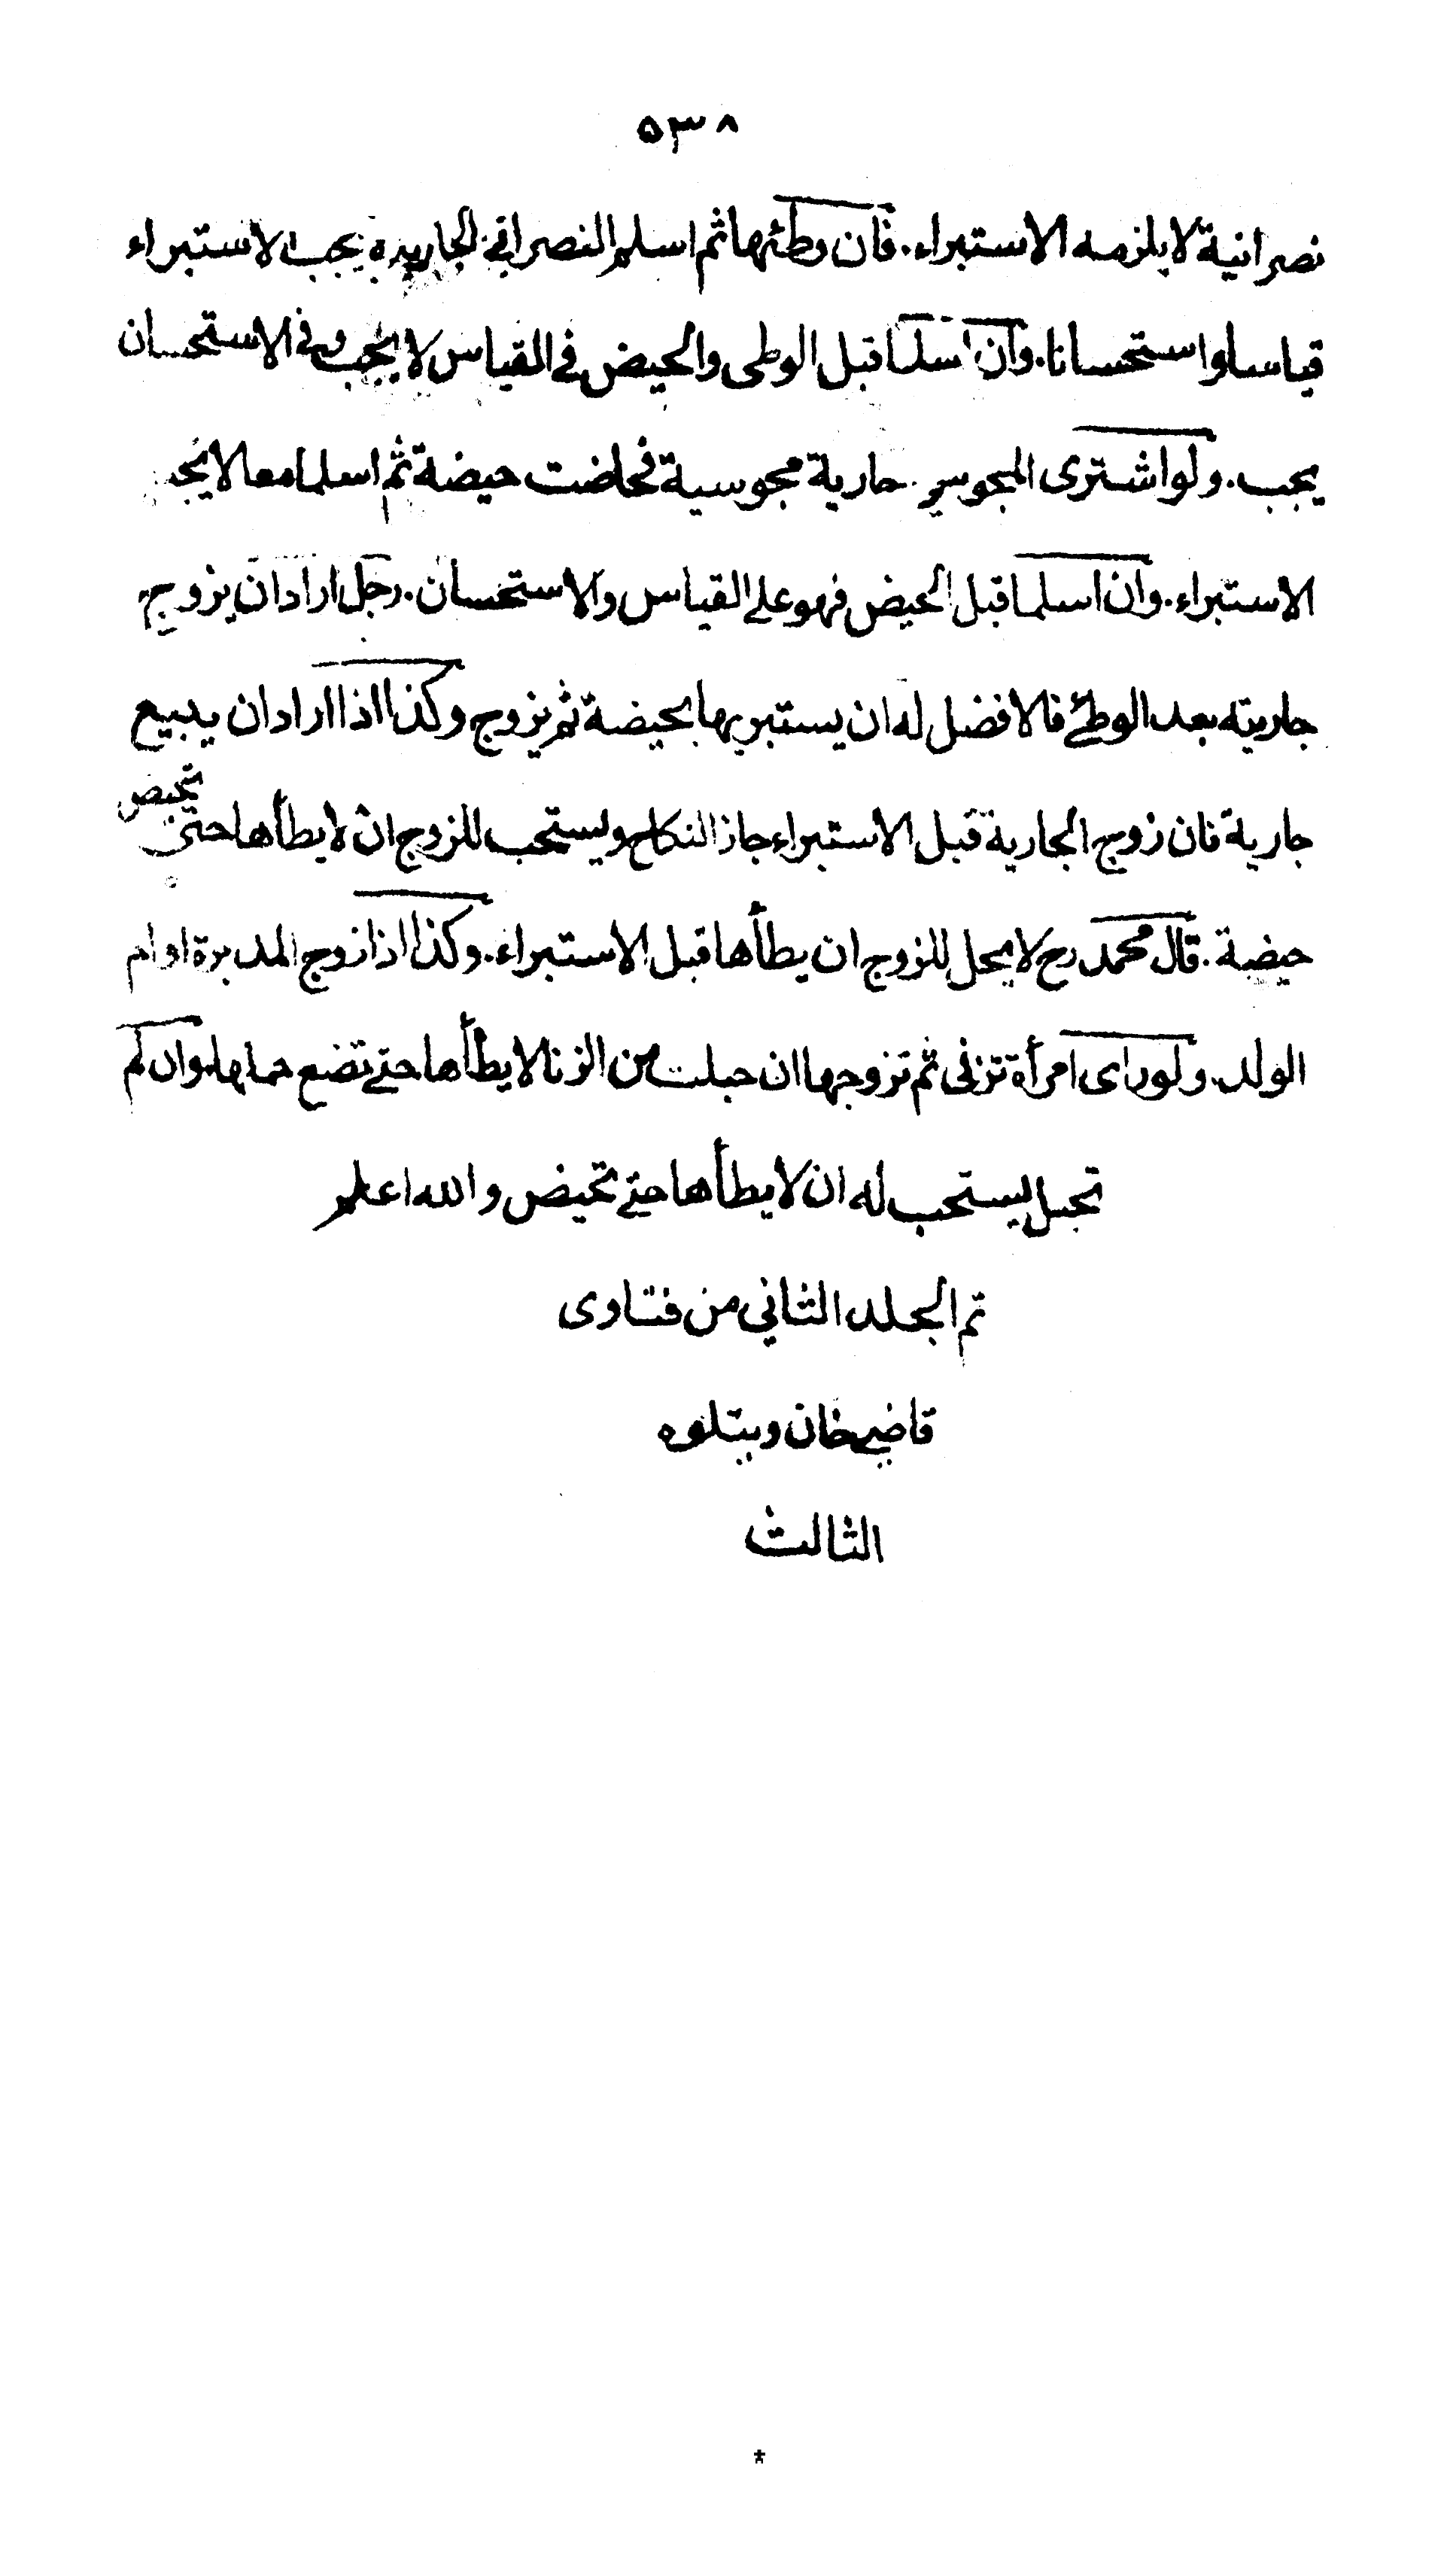 ٥٣٨
نصرانية لا يلزمه الاستبراء. فان وطئها ثم اسلم النصراني الجارية يجب الاستبراء
قياسا واستحسانا. وان اسلما قبل الوطى والحيض في القياس لا يجب وفي الاستحسان
يجب. ولو اشترى المجوسي جارية مجوسية فحاضت حيضة ثم اسلما معا لا يجب
الاستبراء. وان اسلما قبل الحيض فهو على القياس والاستحسان. رجل اراد ان يزوج
جاريته بعد الوطئ فالافضل له ان يستبريها بحيضة ثم يزوج وكذا اذا اراد ان يبيع
جارية فان زوج الجارية قبل الاستبراء جاز النكاح ويستحب للزوج ان لا يطأها حتى تحيض
حيضة. قال محمد رح لا يحل للزوج ان يطأها قبل الاستبراء. وكذا اذا زوج المدبرة او ام
الولد. ولو راى امرأة تزنى ثم تزوجها ان حبلت من الزنا لا يطأها حتى تضع حملها. وان لم
تحبل يستحب له ان لا يطأها حتى تحيض والله اعلم
تم الجلد الثاني من فتاوى
قاضي خان ويتلوه
الثالث